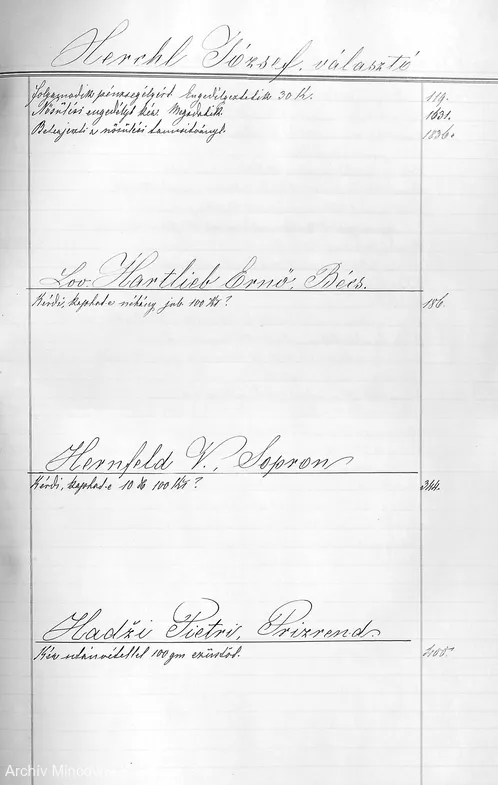 Herchl József. választó
Folyamodik pénzsegélyért Engedélyeztetik 30 Kr. 119.
Nősülési engedélyt kér. Megadatik. 1631.
Beterjeszti a nősülési tanusitványt. 1836.
Lov. Hartlieb Ernő, Bécs.
Kérdi, kaphat-e néhány jub. 100 Kt? 186.
Hernfeld V., Sopron
Kérdi, kaphat-e 10 100 Kt? 344.
Hadži Pietri, Prizrend.
Kér utánvétellel 100 gm ezüstöt.
Archív Mincov